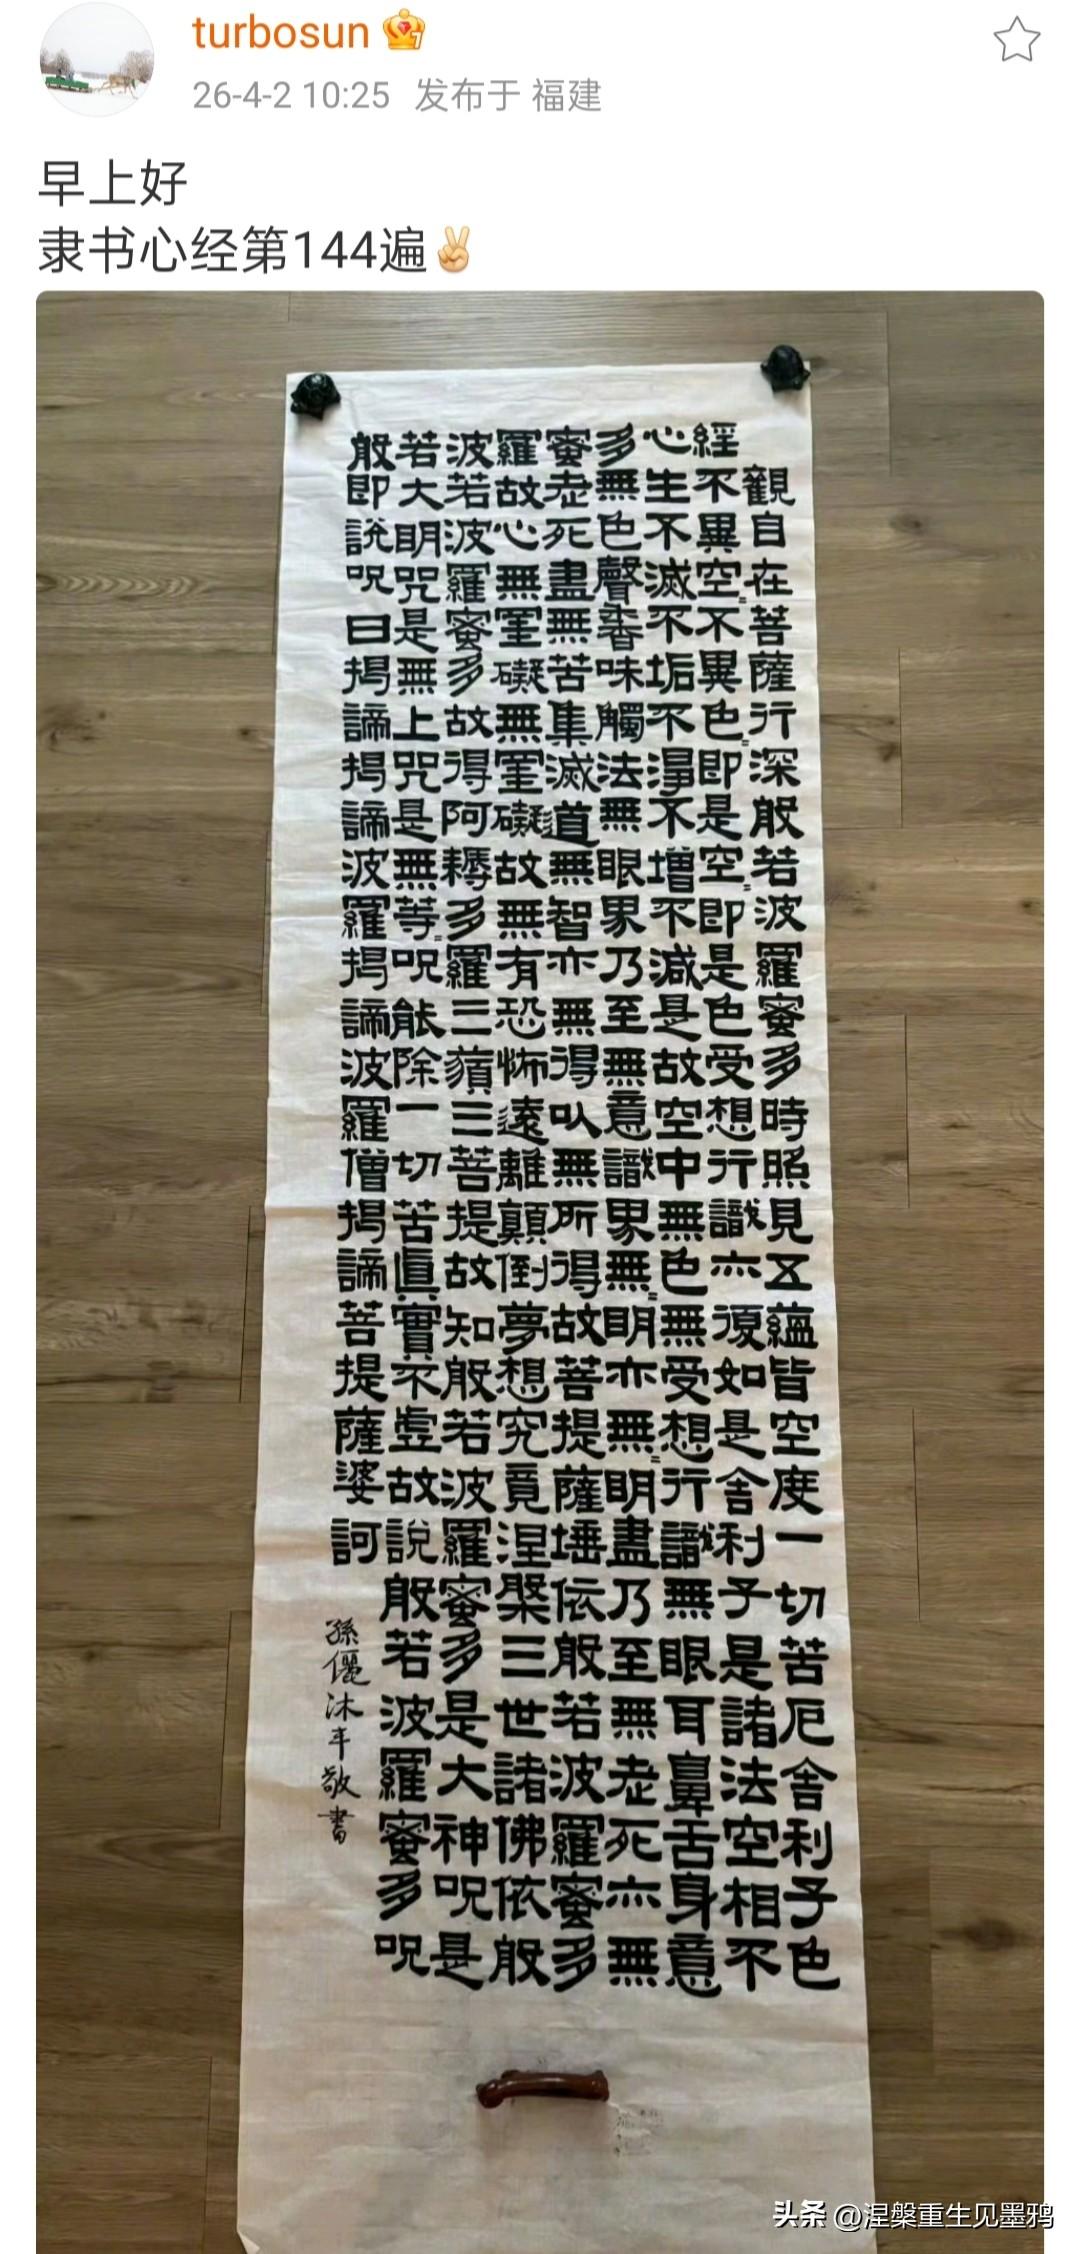 turbosun
26-4-2 10:25 发布于 福建
早上好
隶书心经第144遍✌
般若波羅蜜多心經
觀自在菩薩行深般若波羅蜜多時照見五蘊皆空度一切苦厄舍利子色
不異空〻不異色〻即是空〻即是色受想行識亦復如是舍利子是諸法空相不
生不滅不垢不淨不增不減是故空中無色無受想行識無眼耳鼻舌身意
無色聲香味觸法無眼界乃至無意識界無〻明亦無〻明盡乃至無老死亦無
老死盡無苦集滅道無智亦無得以無所得故菩提薩埵依般若波羅蜜多
故心無罣礙無罣礙故無有恐怖遠離顛倒夢想究竟涅槃三世諸佛依般
若波羅蜜多故得阿耨多羅三藐三菩提故知般若波羅蜜多是大神呪是
大明咒是無上咒是無等〻呪能除一切苦真實不虛故說般若波羅蜜多呪
即說呪曰揭諦揭諦波羅揭諦波羅僧揭諦菩提薩婆訶
孫儷沐手敬書
头条 @涅槃重生见墨鸦